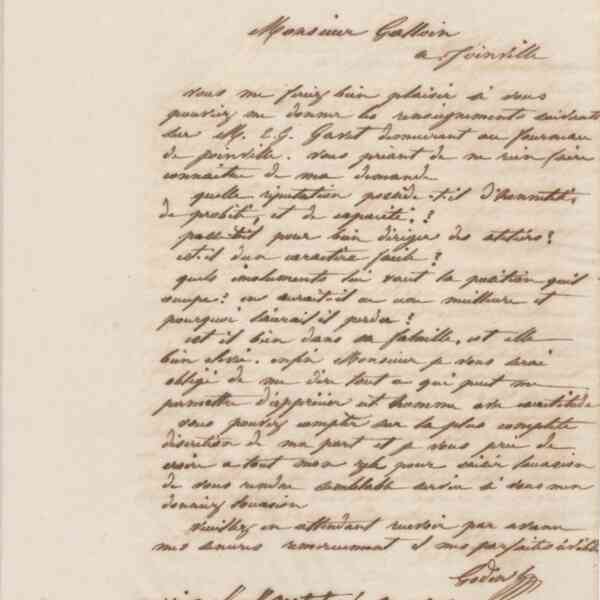 Monsieur Galloin
a Joinville
vous me feriez bien plaisir si vous
pouviez me donner les renseignements suivants
sur M. E. J. Garet demeurant au fourneau
de Joinville. vous priant de ne rien faire
connaitre de ma demande
quelle réputation possède-t-il d'honnêteté,
de probité, et de capacité.?
passe-t-il pour bien diriger des ateliers?
est-il d'un caractère facile?
quels émoluments lui vaut la position qu'il
occupe? en aurait-il eu une meilleure et
pourquoi l'aurait-il perdue?
est il bien dans sa famille, est elle
bien élevée. enfin Monsieur je vous serai
obligé de me dire tout ce qui peut me
permettre d'apprécier cet homme avec certitude
vous pouvez compter sur la plus complète
discretion de ma part et je vous prie de
croire a tout mon zele pour saisir l'occasion
de vous rendre semblable service si vous m'en
donniez l'occasion
veuillez en attendant recevoir par avance
mes sincères remerciement et mes parfaites civilités
Godin